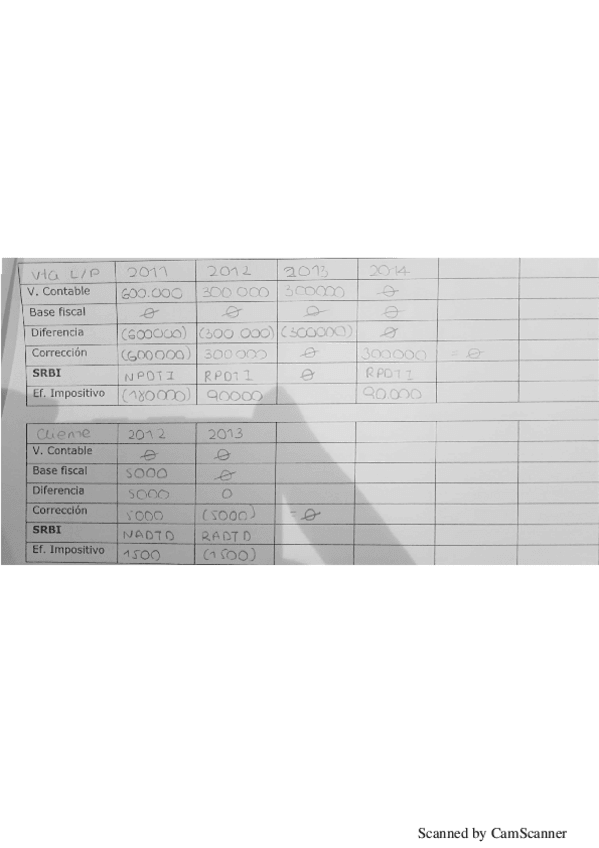 Vta L/P 2011 2012 2013 2014
V. Contable 600.000 300 000 300000 ∅
Base fiscal ∅ ∅ ∅ ∅
Diferencia (600000) (300 000) (300000) ∅
Corrección (600000) 300000 ∅ 300000 = ∅
SRBI NPDTI RPDTI ∅ RPDTI
Ef. Impositivo (180000) 90000 90.000
Cliente 2012 2013
V. Contable ∅ ∅
Base fiscal 5000 ∅
Diferencia 5000 0
Corrección 5000 (5000) = ∅
SRBI NADTD RADTD
Ef. Impositivo 1500 (1500)
Scanned by CamScanner